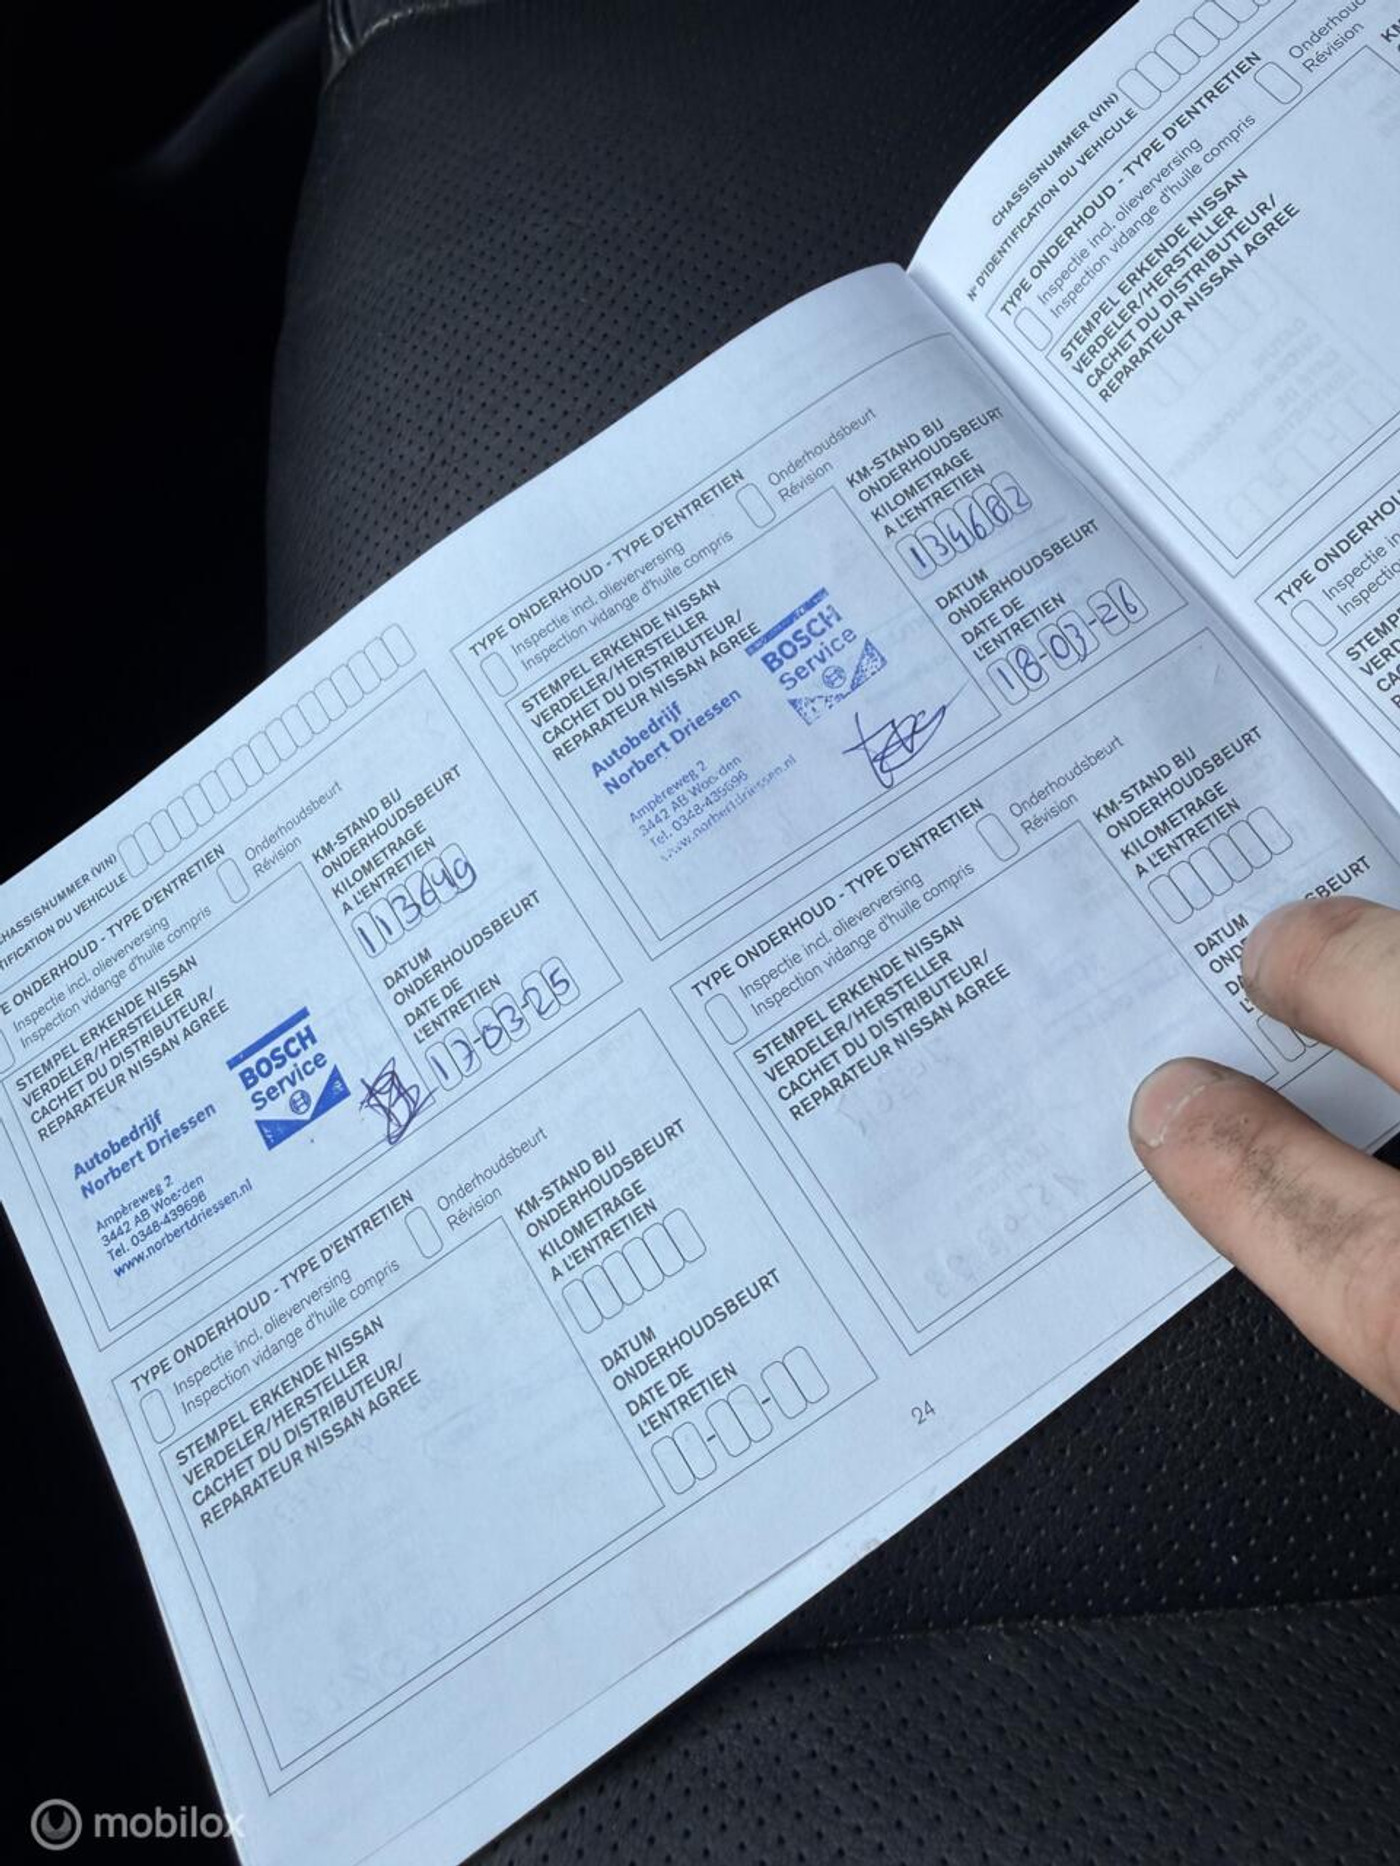 CHASSISNUMMER (VIN)
TIFICATION DU VEHICULE
E ONDERHOUD - TYPE D'ENTRETIEN
Inspectie incl. olieverversing
Inspection vidange d'huile compris
Onderhoudsbeurt
Révision
STEMPEL ERKENDE NISSAN
VERDELER/HERSTELLER
CACHET DU DISTRIBUTEUR/
REPARATEUR NISSAN AGREE
KM-STAND BIJ
ONDERHOUDSBEURT
KILOMETRAGE
A L'ENTRETIEN
113649
DATUM
ONDERHOUDSBEURT
DATE DE
L'ENTRETIEN
17-03-25
Autobedrijf
Norbert Driessen
Ampèreweg 2
3442 AB Woerden
Tel. 0348-439696
www.norbertdriessen.nl
BOSCH
Service
TYPE ONDERHOUD - TYPE D'ENTRETIEN
Inspectie incl. olieverversing
Inspection vidange d'huile compris
Onderhoudsbeurt
Révision
STEMPEL ERKENDE NISSAN
VERDELER/HERSTELLER
CACHET DU DISTRIBUTEUR/
REPARATEUR NISSAN AGREE
KM-STAND BIJ
ONDERHOUDSBEURT
KILOMETRAGE
A L'ENTRETIEN
134682
DATUM
ONDERHOUDSBEURT
DATE DE
L'ENTRETIEN
18-03-26
Autobedrijf
Norbert Driessen
Ampèreweg 2
3442 AB Woerden
Tel. 0348-439696
www.norbertdriessen.nl
BOSCH
Service
TYPE ONDERHOUD - TYPE D'ENTRETIEN
Inspectie incl. olieverversing
Inspection vidange d'huile compris
Onderhoudsbeurt
Révision
STEMPEL ERKENDE NISSAN
VERDELER/HERSTELLER
CACHET DU DISTRIBUTEUR/
REPARATEUR NISSAN AGREE
KM-STAND BIJ
ONDERHOUDSBEURT
KILOMETRAGE
A L'ENTRETIEN
DATUM
ONDERHOUDSBEURT
DATE DE
L'ENTRETIEN
TYPE ONDERHOUD - TYPE D'ENTRETIEN
Inspectie incl. olieverversing
Inspection vidange d'huile compris
Onderhoudsbeurt
Révision
STEMPEL ERKENDE NISSAN
VERDELER/HERSTELLER
CACHET DU DISTRIBUTEUR/
REPARATEUR NISSAN AGREE
KM-STAND BIJ
ONDERHOUDSBEURT
KILOMETRAGE
A L'ENTRETIEN
DATUM
24
CHASSISNUMMER (VIN)
N° D'IDENTIFICATION DU VEHICULE
TYPE ONDERHOUD - TYPE D'ENTRETIEN
Inspectie incl. olieverversing
Inspection vidange d'huile compris
Onderhoud
Révision
STEMPEL ERKENDE NISSAN
VERDELER/HERSTELLER
CACHET DU DISTRIBUTEUR/
REPARATEUR NISSAN AGREE
TYPE ONDERHO
Inspectie in
Inspection
STEMP
VERD
CA
mobilox